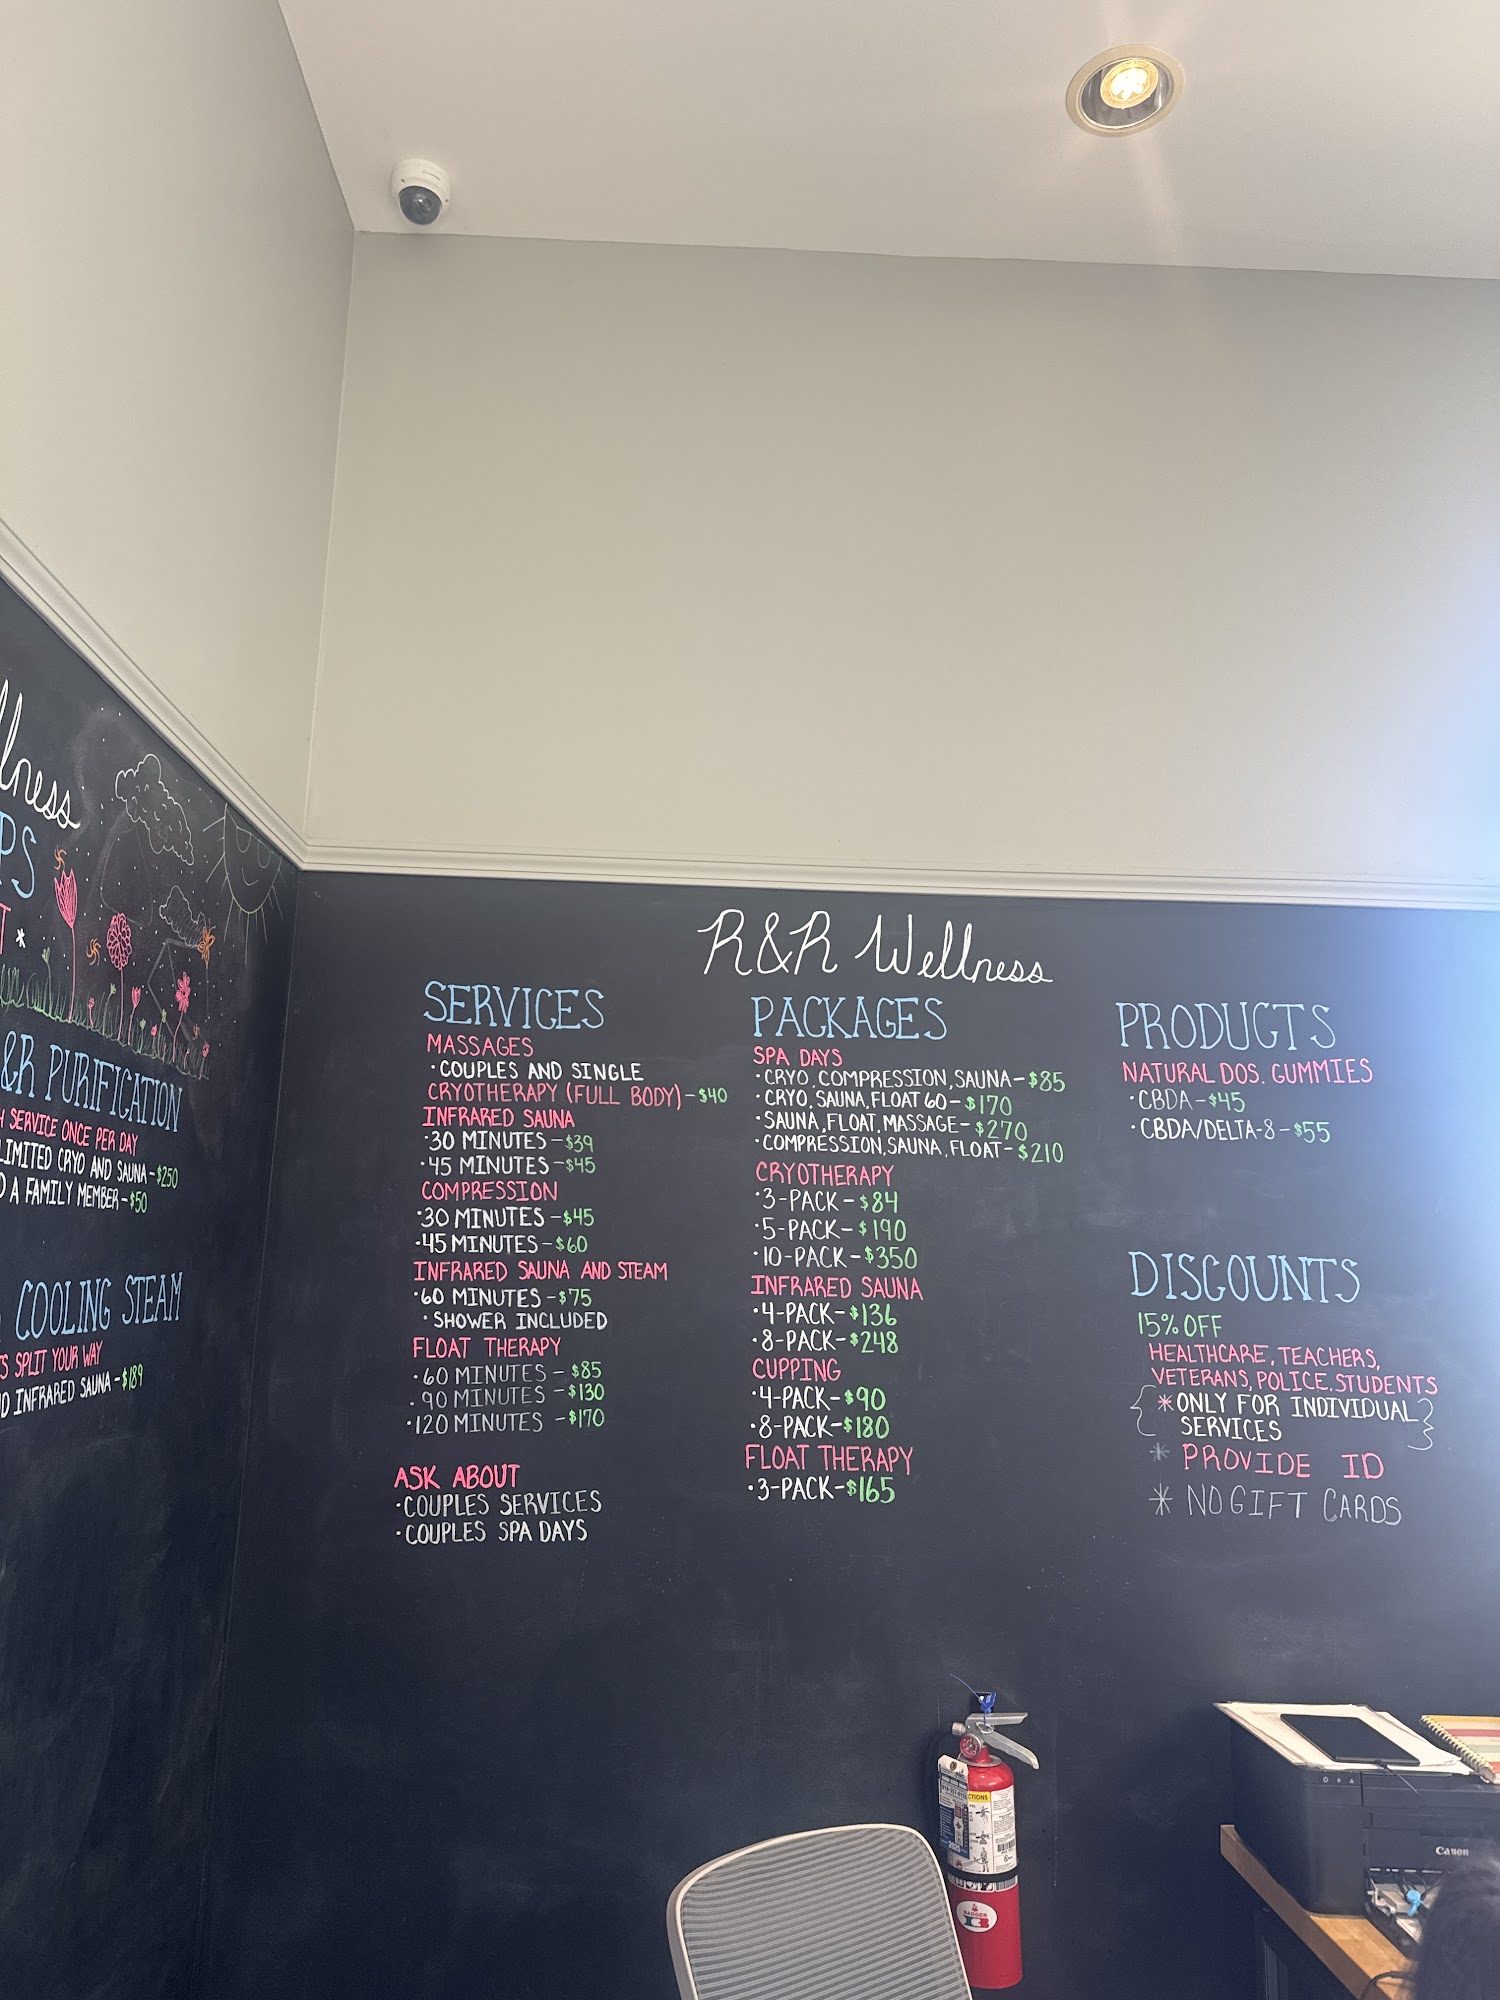 llness
PS
T *
&R PURIFICATION
H SERVICE ONCE PER DAY
LIMITED CRYO AND SAUNA-$250
D A FAMILY MEMBER-$50
COOLING STEAM
S SPLIT YOUR WAY
D INFRARED SAUNA-$189
R&R Wellness
SERVICES
MASSAGES
·COUPLES AND SINGLE
CRYOTHERAPY (FULL BODY)-$40
INFRARED SAUNA
·30 MINUTES-$39
·45 MINUTES-$45
COMPRESSION
·30 MINUTES-$45
·45 MINUTES-$60
INFRARED SAUNA AND STEAM
·60 MINUTES-$75
·SHOWER INCLUDED
FLOAT THERAPY
·60 MINUTES - $85
·90 MINUTES - $130
·120 MINUTES - $170
ASK ABOUT
·COUPLES SERVICES
·COUPLES SPA DAYS
PACKAGES
SPA DAYS
·CRYO, COMPRESSION, SAUNA-$85
·CRYO, SAUNA, FLOAT 60-$170
·SAUNA, FLOAT, MASSAGE-$270
·COMPRESSION, SAUNA, FLOAT-$210
CRYOTHERAPY
·3-PACK-$84
·5-PACK-$190
·10-PACK-$350
INFRARED SAUNA
·4-PACK-$136
·8-PACK-$248
CUPPING
·4-PACK-$90
·8-PACK-$180
FLOAT THERAPY
·3-PACK-$165
PRODUCTS
NATURAL DOS. GUMMIES
·CBDA-$45
·CBDA/DELTA-8-$55
DISCOUNTS
15% OFF
HEALTHCARE, TEACHERS,
VETERANS, POLICE, STUDENTS
*ONLY FOR INDIVIDUAL
SERVICES
* PROVIDE ID
* NO GIFT CARDS
CTIONS
BADGER
Canon